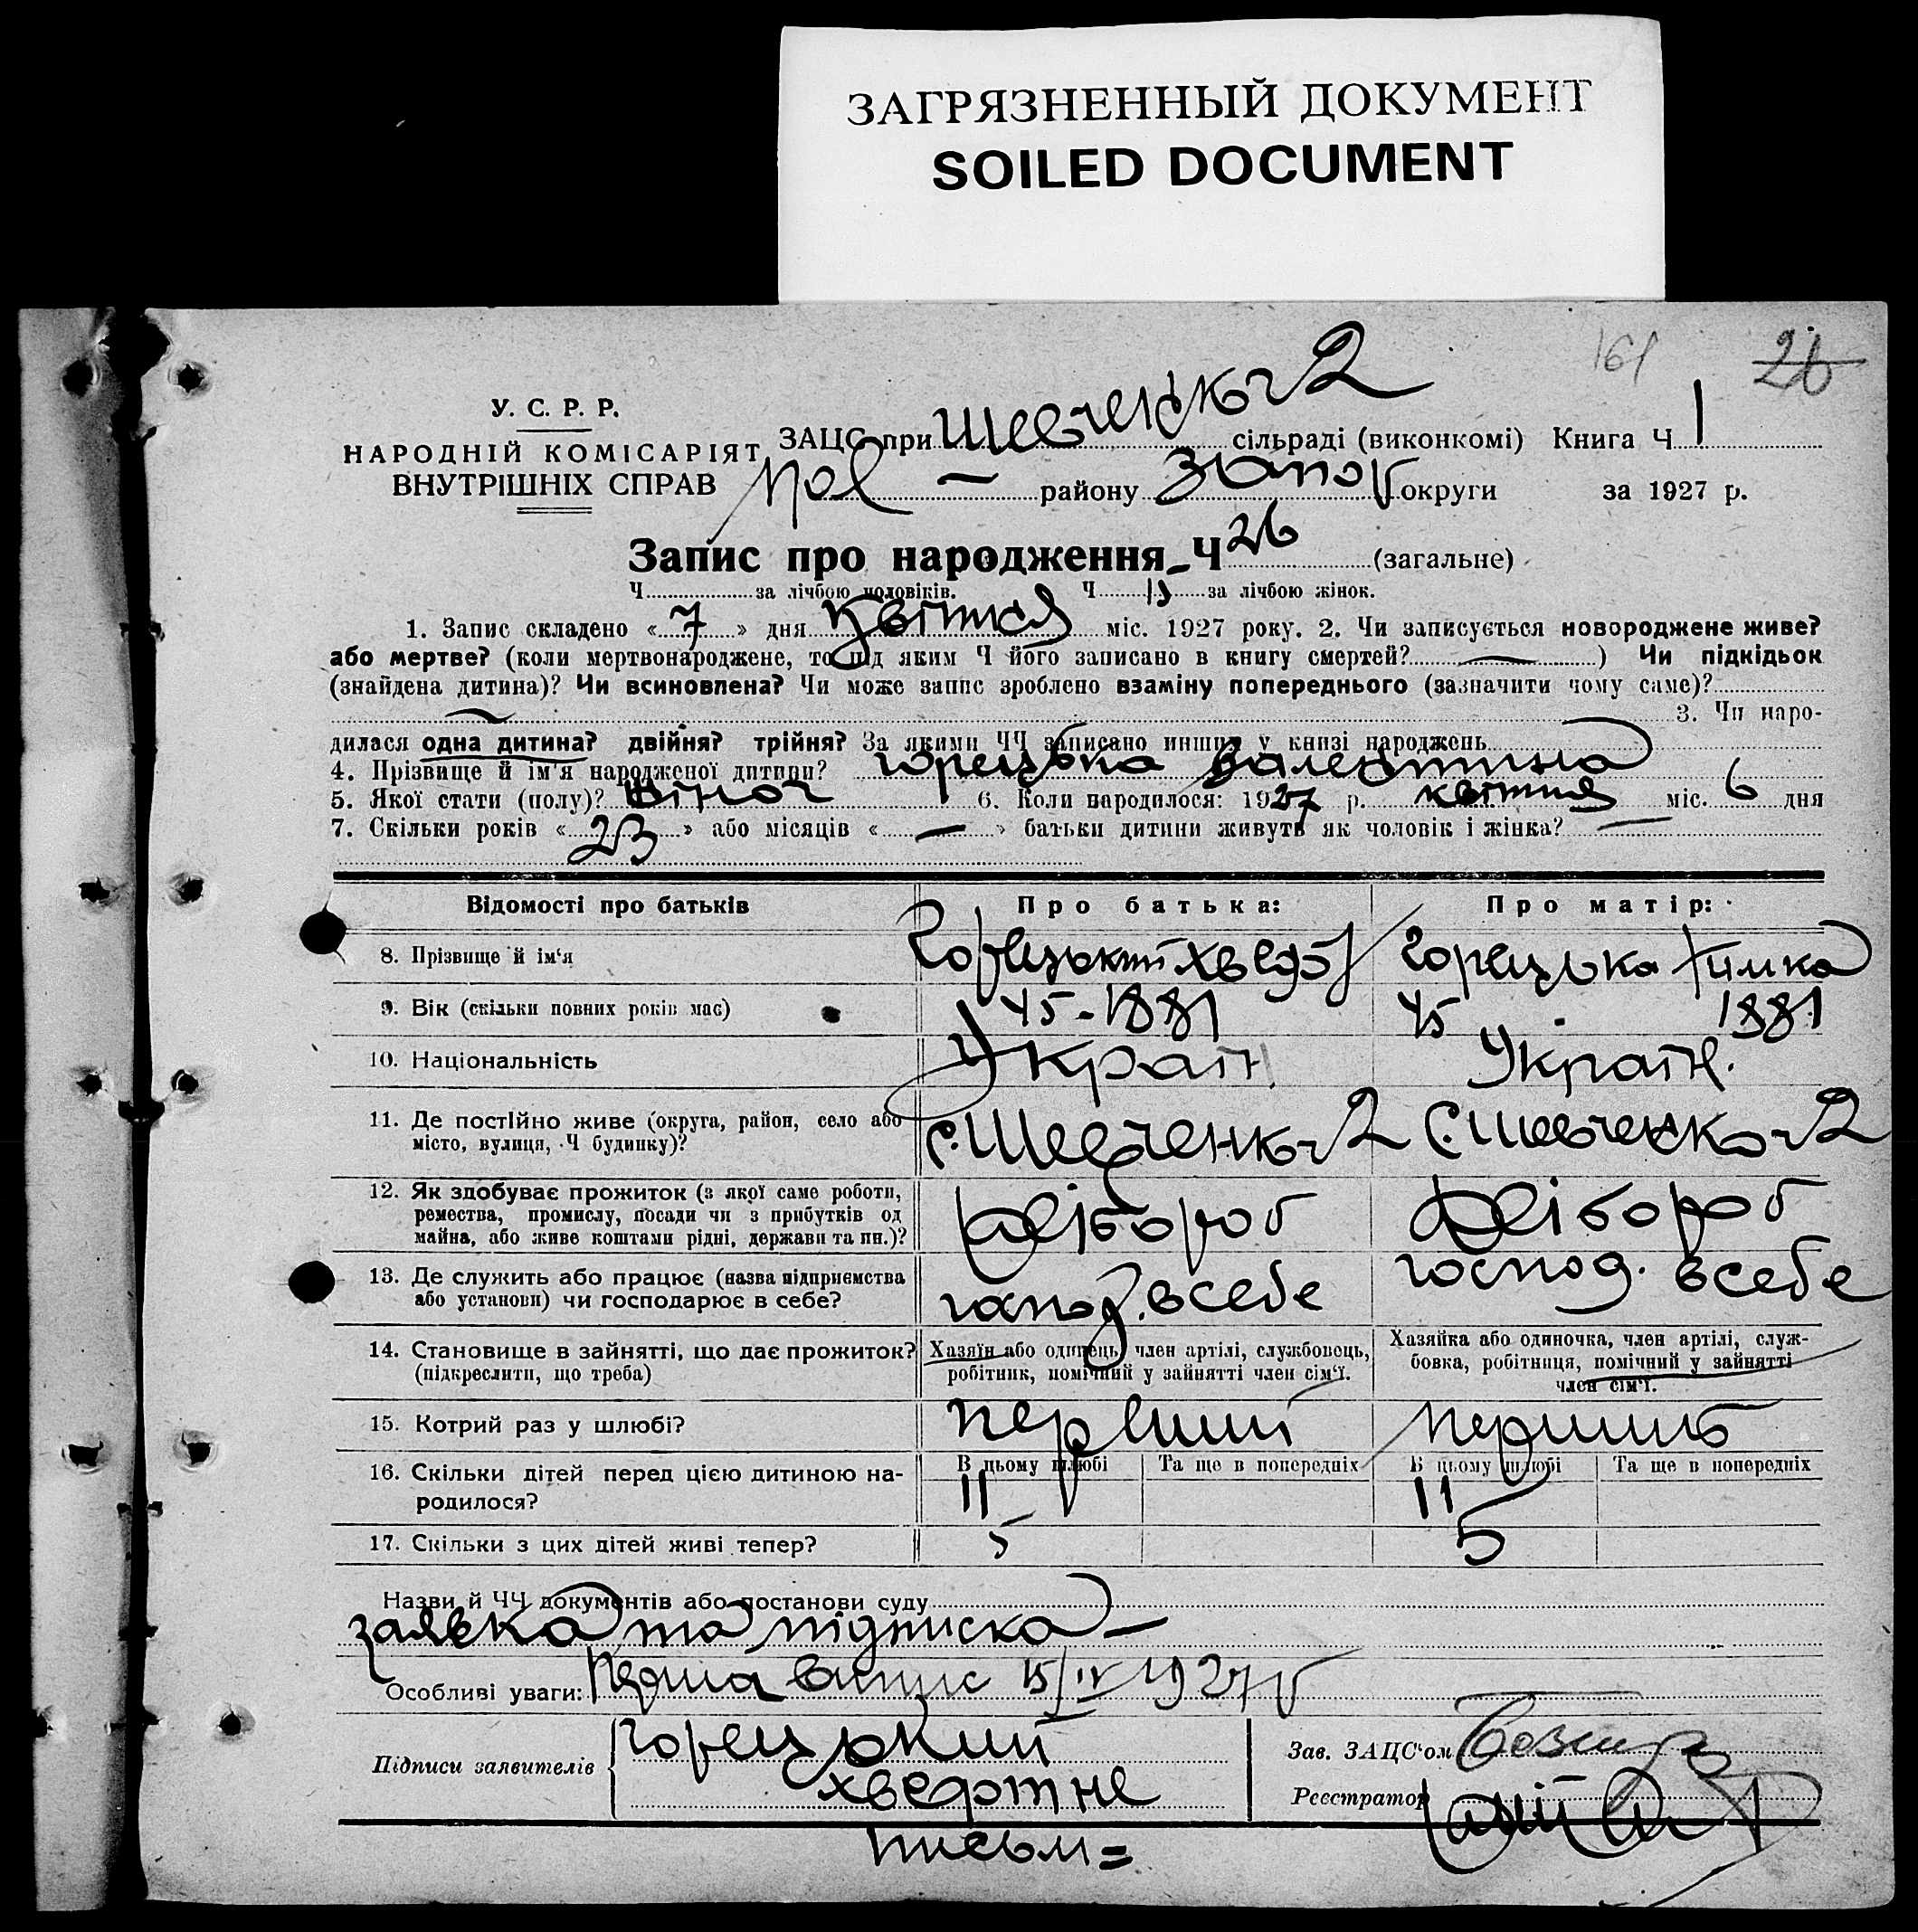 ЗАГРЯЗНЕННЫЙ ДОКУМЕНТ
SOILED DOCUMENT
161 26
У. С. Р. Р.
НАРОДНІЙ КОМІСАРІЯТ
ВНУТРІШНІХ СПРАВ
ЗАЦС при Шевченків 2 сільраді (виконкомі) Книга Ч 1
району Запор округи за 1927 р.
Запис про народження Ч 26 (загальне)
Ч за лічбою чоловіків. Ч 13 за лічбою жінок.
1. Запис складено « 7 » дня Квітня міс. 1927 року. 2. Чи записується новороджене живе?
або мертве? (коли мертвонароджене, то під яким Ч його записано в книгу смертей? — ) Чи підкідьок
(знайдена дитина)? Чи всиновлена? Чи може запис зроблено взаміну попереднього (зазначити чому саме)?
— 3. Чи наро-
дилася одна дитина? двійня? трійня? За якими ЧЧ записано инших у книзі народжень
4. Прізвище й ім'я народженої дитини? Горецька Валентина
5. Якої стати (полу)? Жіноч 6. Коли народилося: 1927 р. квітня міс. 6 дня
7. Скільки років « 23 » або місяців « — » батьки дитини живуть як чоловік і жінка? —
Відомості про батьків Про батька: Про матір:
8. Прізвище й ім'я Горецький Хведор Горецька Химка
9. Вік (скільки повних років має) 45 - 1881 45 1881
10. Національність Україн. Україн.
11. Де постійно живе (округа, район, село або
місто, вулиця, Ч будинку)? с. Шевченків 2 С. Шевченков 2
12. Як здобуває прожиток (з якої саме роботи,
ремества, промислу, посади чи з прибутків од
майна, або живе коштами рідні, держави та ин.)? хлібороб хлібороб
13. Де служить або працює (назва підприємства
або установи) чи господарює в себе? господ. в себе господ. в себе
14. Становище в зайнятті, що дає прожиток?
(підкреслити, що треба)
Хазяїн або одинець, член артілі, службовець,
робітник, помічний у зайнятті член сім'ї.
Хазяйка або одиночка, член артілі, служ-
бовка, робітниця, помічний у зайнятті
член сім'ї.
15. Котрий раз у шлюбі? перший перший
16. Скільки дітей перед цією дитиною на-
родилося?
В цьому шлюбі Та ще в попередніх В цьому шлюбі Та ще в попередніх
11 11
17. Скільки з цих дітей живі тепер? 5 5
Назви й ЧЧ документів або постанови суду
заявка та підписка —
Особливі уваги: Перша випис 15/IV 1927 р
Підписи заявителів Горецький
Зав. ЗАЦС'ом
Реєстратор
письм =